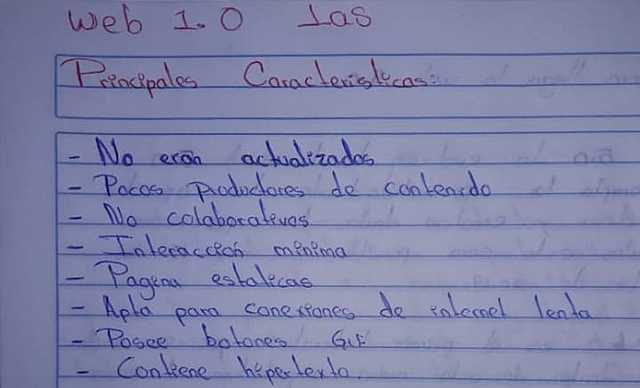 Web 1.0 Las
Principales Características:
- No eran actualizados
- Pocos productores de contenido
- No colaborativos
- Interacción mínima
- Pagina estaticas
- Apta para conexiones de internet lenta
- Posee botones GIF
- Contiene hipertexto.